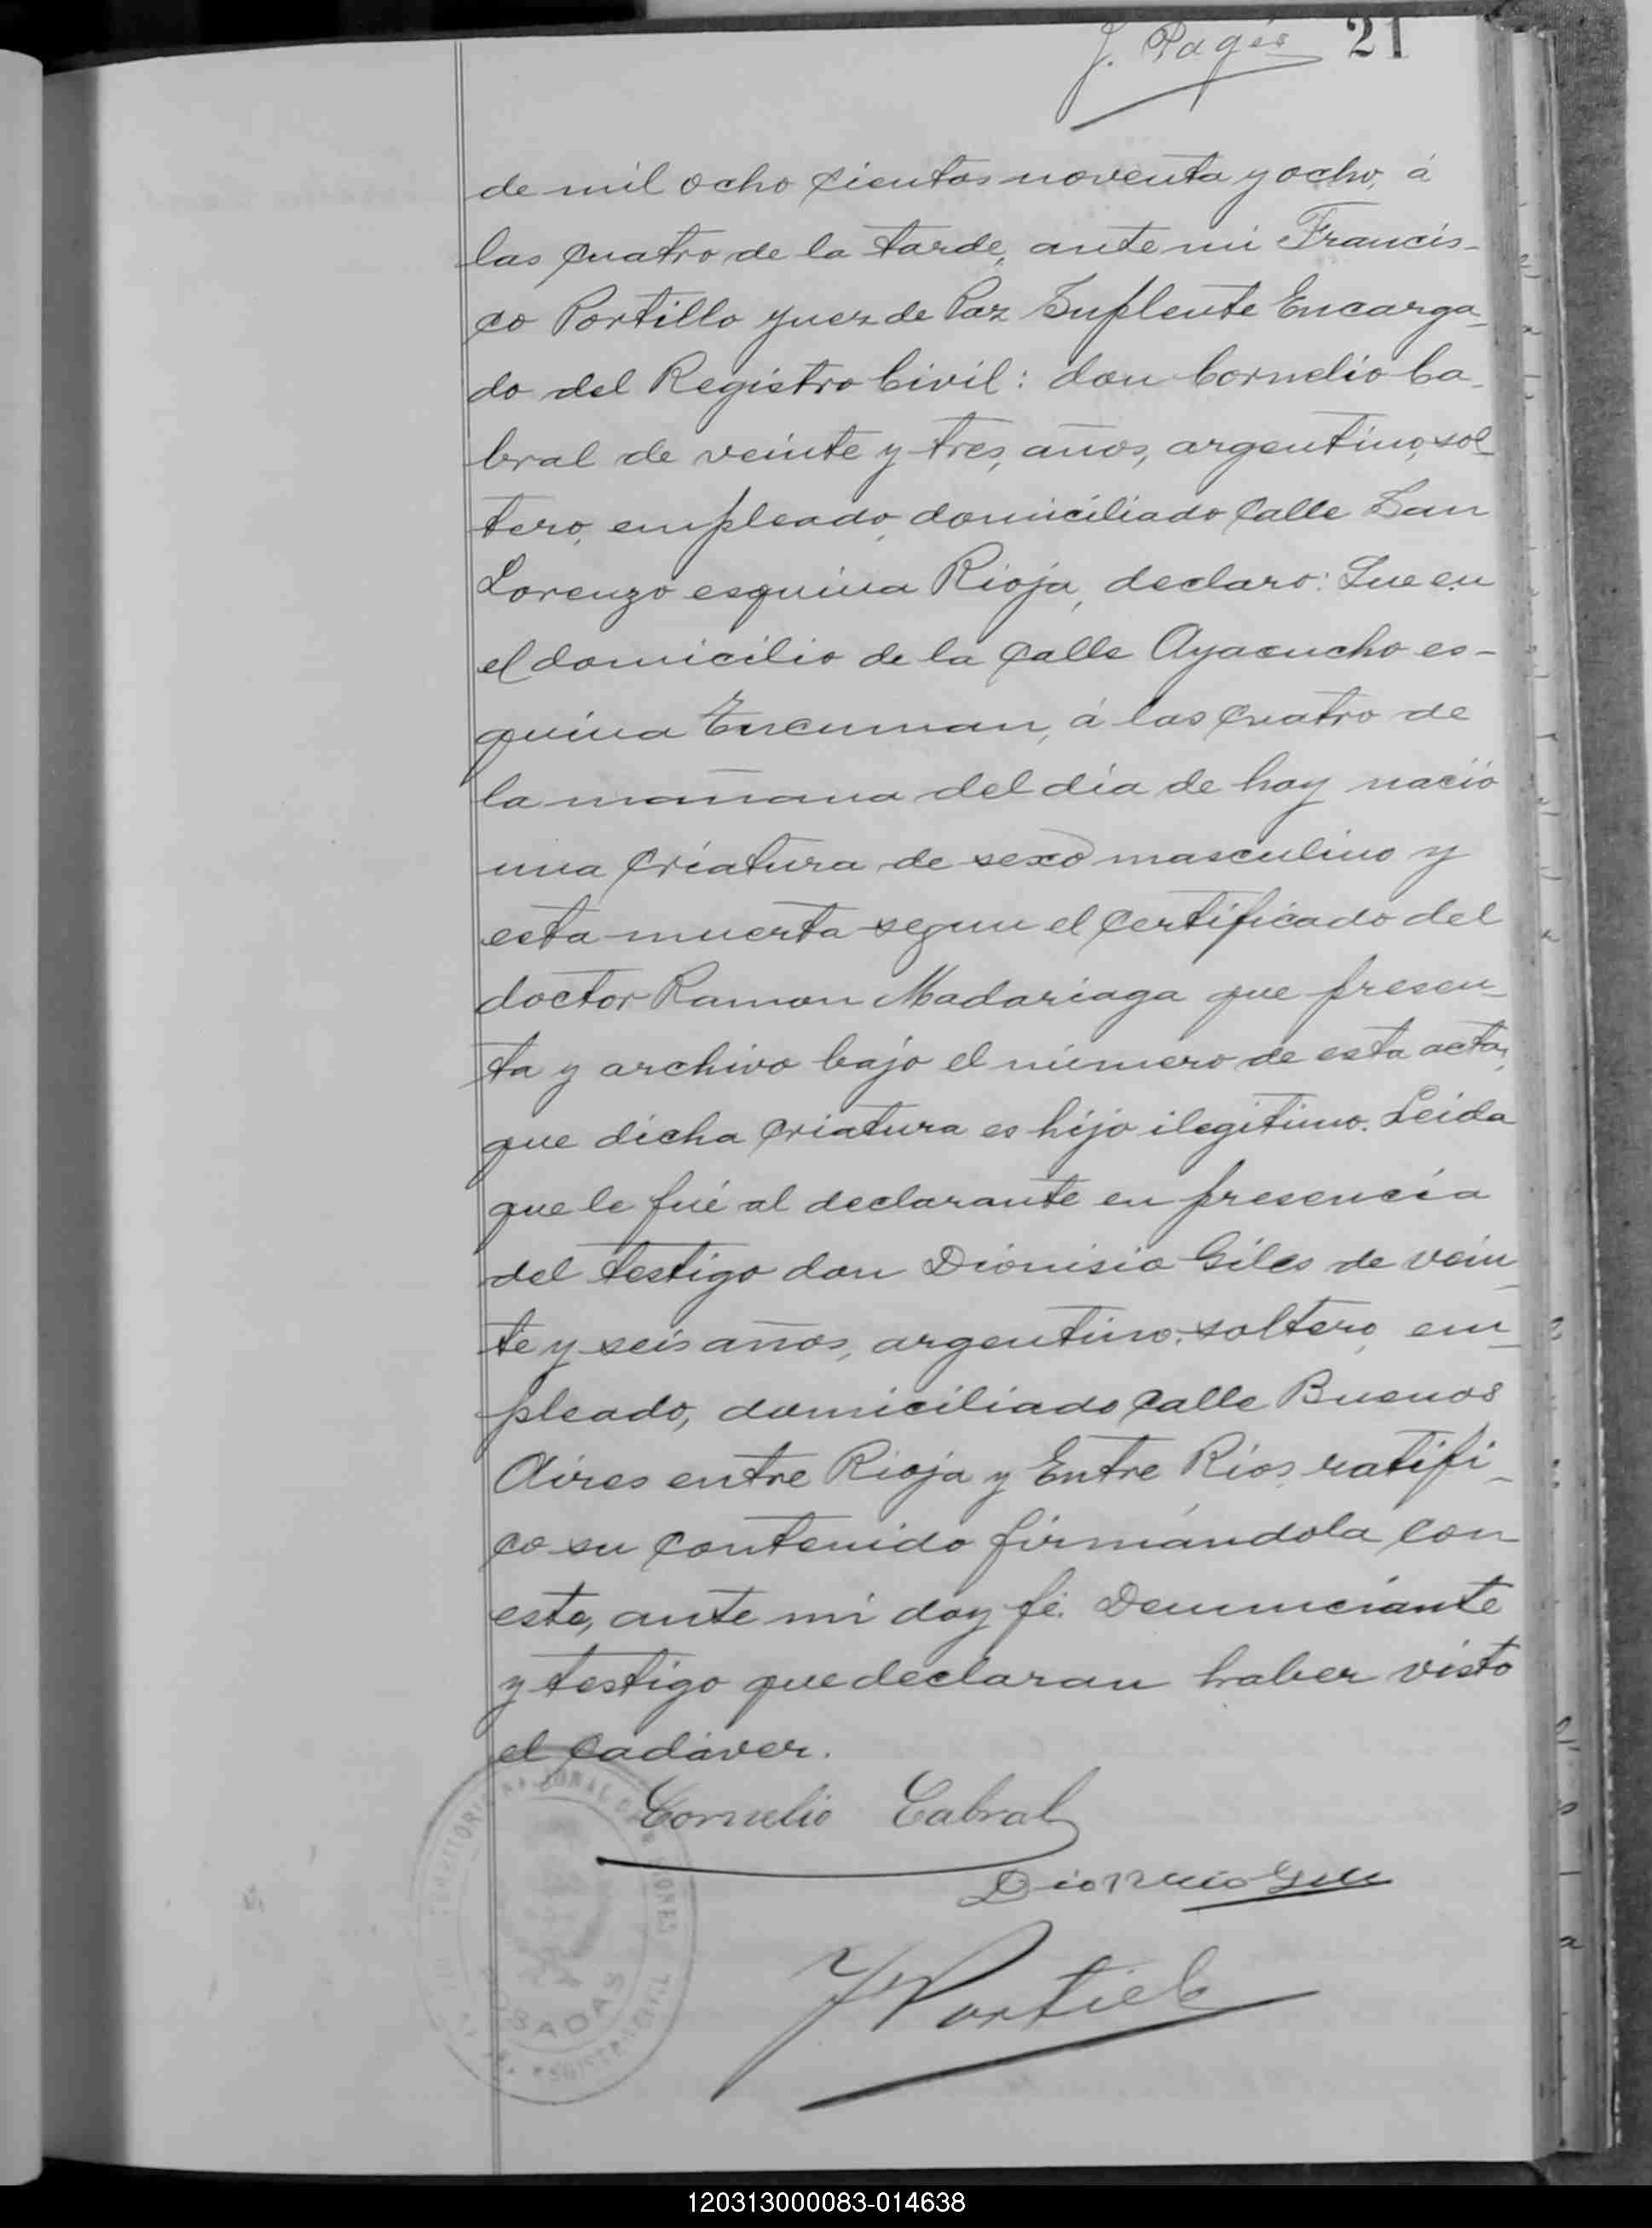 J. Pagés 21
de mil ocho cientos noventa y ocho, á
las cuatro de la tarde, ante mi Francis-
co Portillo Juez de Paz Suplente Encarga-
do del Registro Civil: don Cornelio Ca-
bral de veinte y tres, años, argentino, sol-
tero, empleado, domiciliado calle San
Lorenzo esquina Rioja, declaro: Que en
el domicilio de la calle Ayacucho es-
quina Tucuman, á las cuatro de
la mañana del dia de hoy nació
una criatura de sexo masculino y
esta muerta segun el certificado del
doctor Ramon Madariaga que presen-
ta y archivo bajo el número de esta acta,
que dicha criatura es hijo ilegitimo. Leida
que le fué al declarante en presencia
del testigo don Dionisio Giles de vein-
te y seis años, argentino, soltero, em-
pleado, domiciliado calle Buenos
Aires entre Rioja y Entre Rios, ratifi-
co su contenido firmándola con
este, ante mi doy fé. Denunciante
y testigo que declaran haber visto
el cadáver.
Cornelio Cabral
Dionicio
F Portillo
POSADAS
120313000083-014638